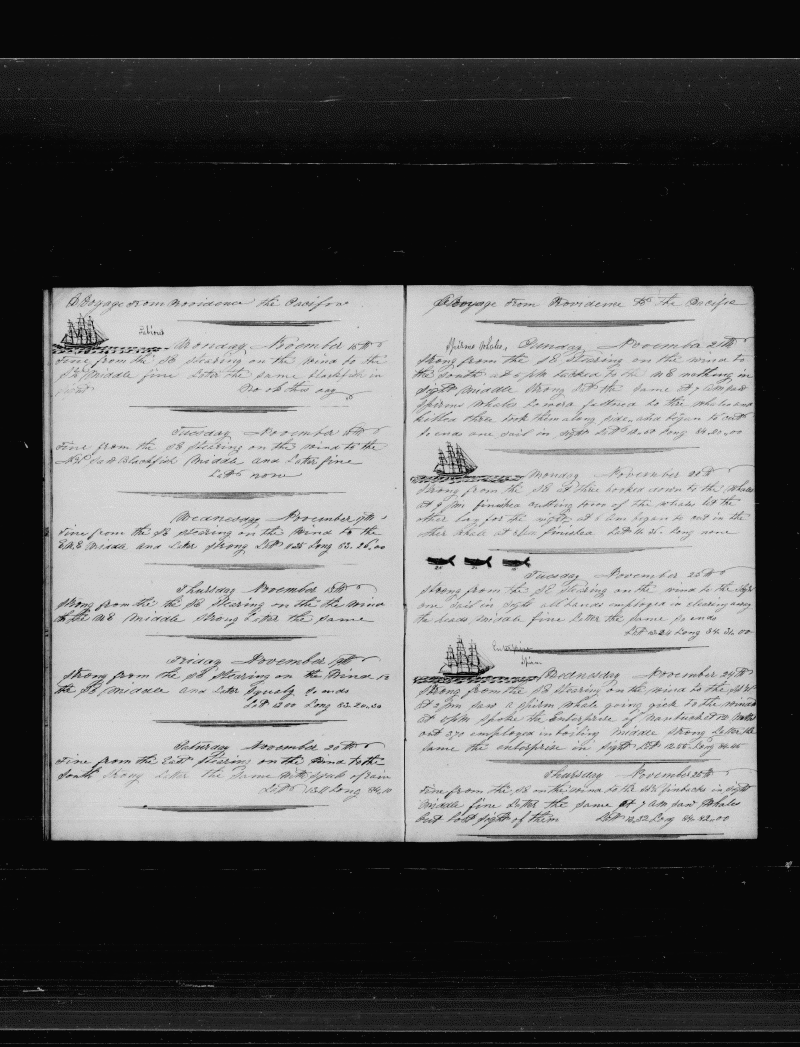 A Voyage From Providence the Pacific
Fabious
Monday November 15th
Fine from the SE stearing on the wind to the
Middle fine Later the same blackfish in
sight No ob this
Tuesday November 16th
Fine from the SE stearing on the wind to the
saw Blackfish Middle and Later fine
Lat none
Wednesday November 17th
Fine from the SE stearing on the wind to the
ENE Middle and Later strong Latt Long 83.26.00
Thursday November 18th
strong from the the SE stearing on the the wind
to the NE Middle strong Later the same
Friday November 19th
strong from the SE stearing on the wind to
the SE middle and Later squaly so ends
Latt Long 83.20.30
Saturday November 20th
Fine from the East stearing on the wind to the
South strong Later the same with squals of rain
Latt Long 84.10
A Voyage From Providence to the Pacific
Spirms whales, Sunday, November 21th
strong from the SE stearing on the wind to
the south at 5 PM tacked to the NE nothing in
sight Middle strong Latt the same at 7 AM saw
Spirms whales Lowerd fastened to three whales and
killed three took them along side, and began to cutt
so ends one sail in sight Latt Long
Monday November 22th
strong from the SE at three hooked down to the whales
at 9 PM finished cutting two of the whales let the
other Lay for the night, at 5 AM began to cut in the
other whale at finished Latt Long none
Tuesday November 23th
strong from the SE stearing on the wind to the
one sail in sight all hands employed in clearing away
the heads Middle fine Later the same so ends
Latt Long 84.34.00
Enterprise
Spirm
Wednesday November 24th
strong from the SE stearing on the wind to the
at 2 PM saw a spirm whale going quick to the wind
at 5 PM spoke the Enterprise of Nantucket 12 months
out 270 employed in boiling Middle strong Latter the
same the enterprise in sight Latt Long
Thursday November 25th
Fine from the SE on the wind to the finbacks in sight
Middle fine Later the same at 7 AM saw whales
but lost sight of them Latt Long 84.42.00